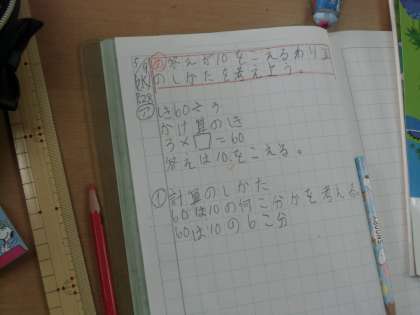 5/9 め 答えが10をこえるわり算
水 のしかたを考えよう。
P.28
ア しき60÷3
かけ算のしき
3×□=60
答えは10をこえる。
① 計算のしかた
60は10の何こ分かを考える
60は10の6こ分